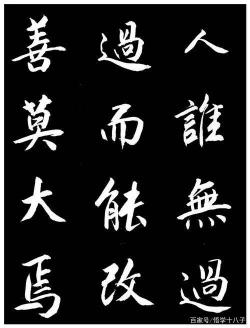 人誰無過
過而能改
善莫大焉
百家号/悟学十八子